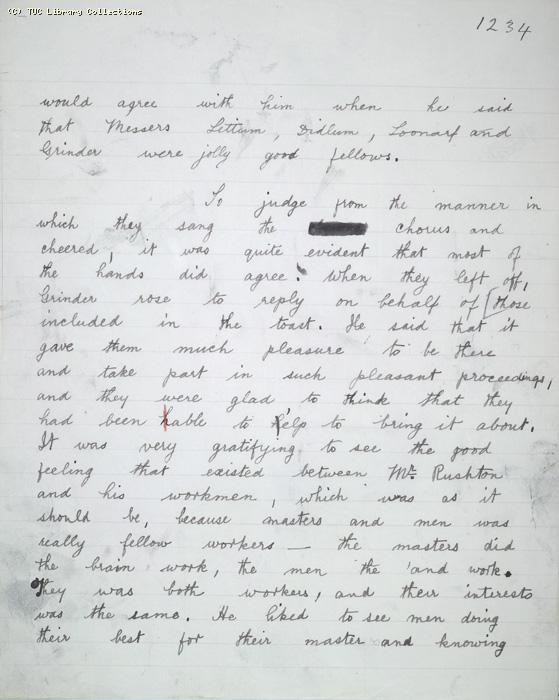 (C) TUC Library Collections
1234
would agree with him when he said
that Messers Lettum, Didlum, Toonarf and
Grinder were jolly good fellows.
To judge from the manner in
which they sang the chorus and
cheered, it was quite evident that most of
the hands did agree. When they left off,
Grinder rose to reply on behalf of [those
included in the toast. He said that it
gave them much pleasure to be there
and take part in such pleasant proceedings,
and they were glad to think that they
had been hable to 'elp to bring it about.
It was very gratifying to see the good
feeling that existed between Mr. Rushton
and his workmen, which was as it
should be, because masters and men was
really fellow workers — the masters did
the brain work, the men the 'and work.
They was both workers, and their interests
was the same. He liked to see men doing
their best for their master and knowing